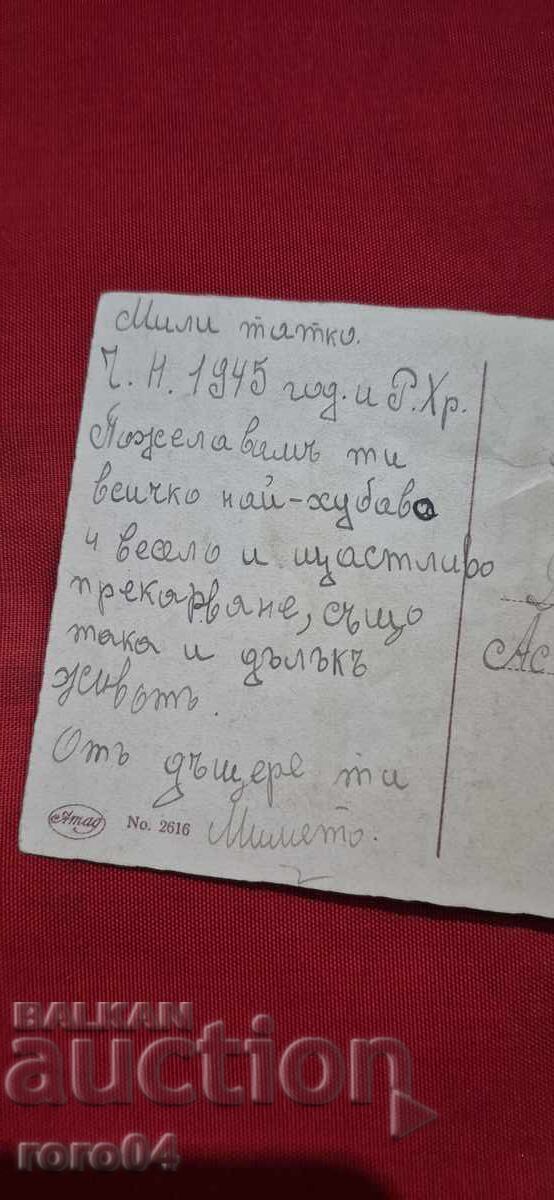 Мили татко.
Ч. Н. 1945 год. и Р. Хр.
Пожелавамъ ти
всичко най-хубаво
и весело и щастливо
прекарване, също
така и дълъкъ
животъ.
Отъ дъщере ти
Мимето.
Amag No. 2616
Ас
BALKAN
auction
roro04